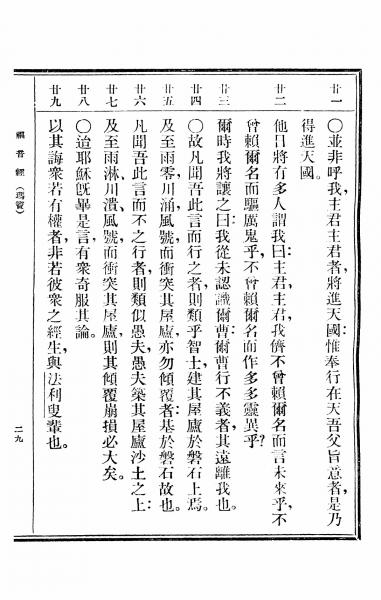 廿一 ○並非呼我主君主君者、將進天國惟奉行在天吾父旨意者、是乃
得進天國。
廿二 他日將有多人謂我曰、主君主君、我儕不曾賴爾名而言未來乎、不
曾賴爾名而驅厲鬼乎、不曾賴爾名而作多多靈異乎。
廿三 爾時我將讓之曰、我從未認識爾曹、爾曹行不義者、其遠離我也。
廿四 ○故凡聞吾此言而行之者、則類乎智士、建其屋廬於磐石上焉。
廿五 及至雨零、川涌、風號、而衝突其屋廬、亦勿傾覆者、基於磐石故也。
廿六 凡聞吾此言而不之行者、則類似愚夫、愚夫築其屋廬沙土之上、
廿七 及至雨淋、川潰、風號、而衝突其屋廬、則其傾覆崩損必大矣。
廿八 ○迨耶穌旣畢是言、有衆奇服其論。
廿九 以其誨衆若有權者、非若彼衆之經生、與法利叟輩也。
福音經 (瑪竇)
二九